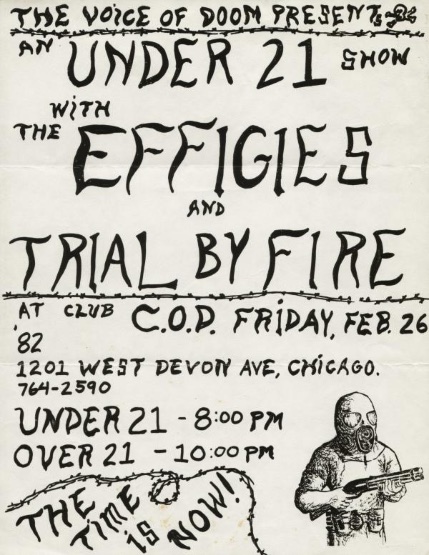 THE VOICE OF DOOM PRESENTS
AN UNDER 21 SHOW
WITH
THE EFFIGIES
AND
TRIAL BY FIRE
AT CLUB C.O.D. FRIDAY, FEB. 26
'82
1201 WEST DEVON AVE, CHICAGO.
764-2590
UNDER 21 - 8:00 PM
OVER 21 - 10:00 PM
THE TIME IS NOW!